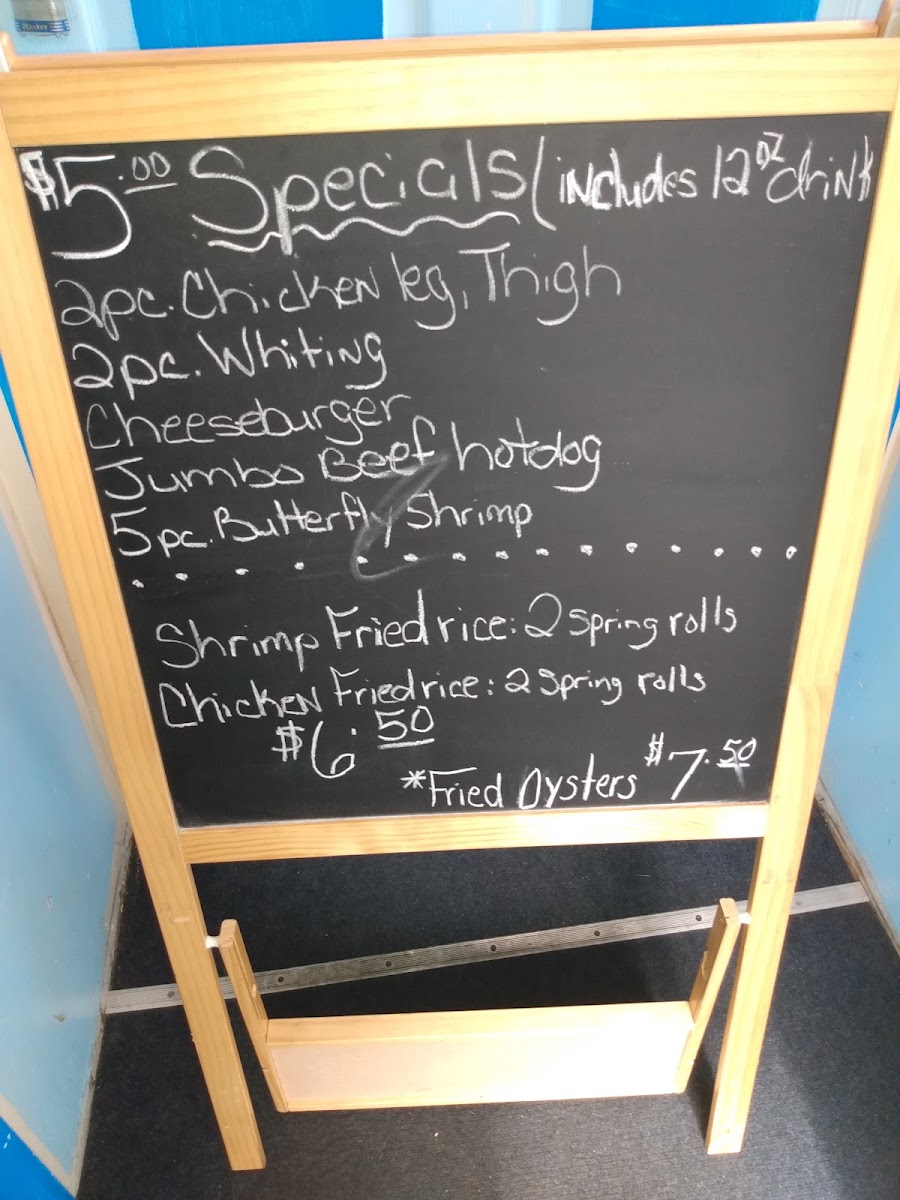 $5.00 Specials (includes 12oz drink
2pc. Chicken leg, Thigh
2pc. Whiting
Cheeseburger
Jumbo Beef hotdog
5pc. Butterfly Shrimp
Shrimp Fried rice: 2 spring rolls
Chicken Fried rice: 2 spring rolls
$6.50
*Fried Oysters $7.50